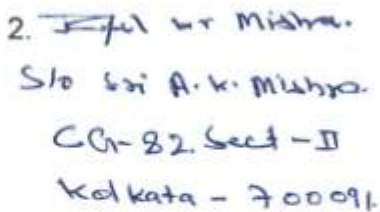 2. kr Mishra.
S/o Sri A. K. Mishra.
CG-82. Sect-II
Kolkata - 700091.